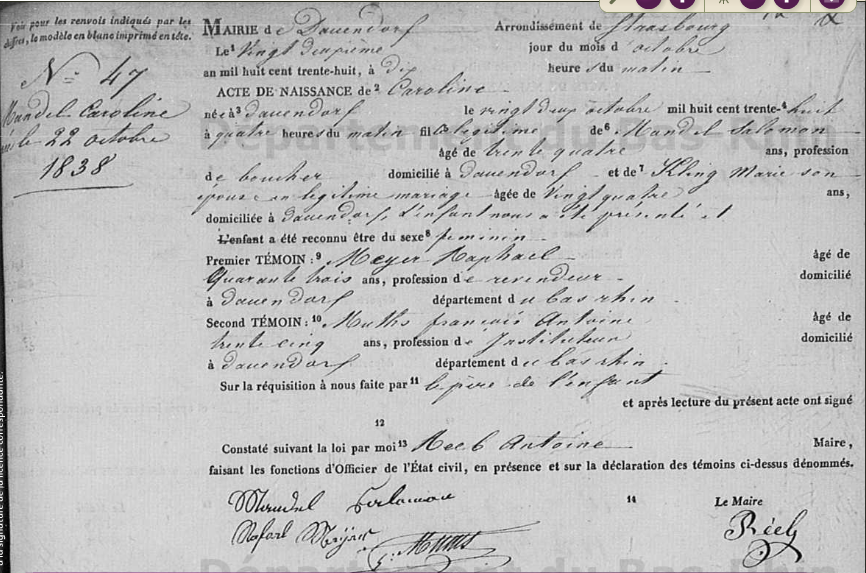 Voir pour les renvois indiqués par les
chiffres, le modèle en blanc imprimé en tête.
N.° 47
Mandel Caroline
née le 22 octobre
1838
MAIRIE de Dauendorf Arrondissement de Strasbourg
Le¹ Vingt deuxième jour du mois d'octobre
an mil huit cent trente-huit, à dix heures du matin
ACTE DE NAISSANCE de² Caroline
née à³ dauendorf le vingt deux octobre mil huit cent trente-⁴ huit
à⁵ quatre heures du matin fille légitime de⁶ Mandel Salomon
âgé de trente quatre ans, profession
de boucher domicilié à dauendorf et de⁷ Kling Marie son
épouse en légitime mariage âgée de Vingt quatre ans,
domiciliée à dauendorf, l'enfant nous a été présenté et
L'enfant a été reconnu être du sexe⁸ feminin
Premier TÉMOIN :⁹ Meyer Raphael âgé de
Quarante trois ans, profession de revendeur domicilié
à dauendorf département du bas rhin
Second TÉMOIN :¹⁰ Muths françois Antoine âgé de
trente cinq ans, profession de Instituteur domicilié
à dauendorf département du bas rhin
Sur la réquisition à nous faite par¹¹ le père de l'enfant
et après lecture du présent acte ont signé
12
Constaté suivant la loi par moi¹³ Reeb Antoine Maire,
faisant les fonctions d'Officier de l'État civil, en présence et sur la déclaration des témoins ci-dessus dénommés.
Mandel Salomon 14 Le Maire
Rafael Meÿer Réeb
Muths
Département du Bas-Rhin
Département du Bas-Rhin
à la signature de la licence correspondante.